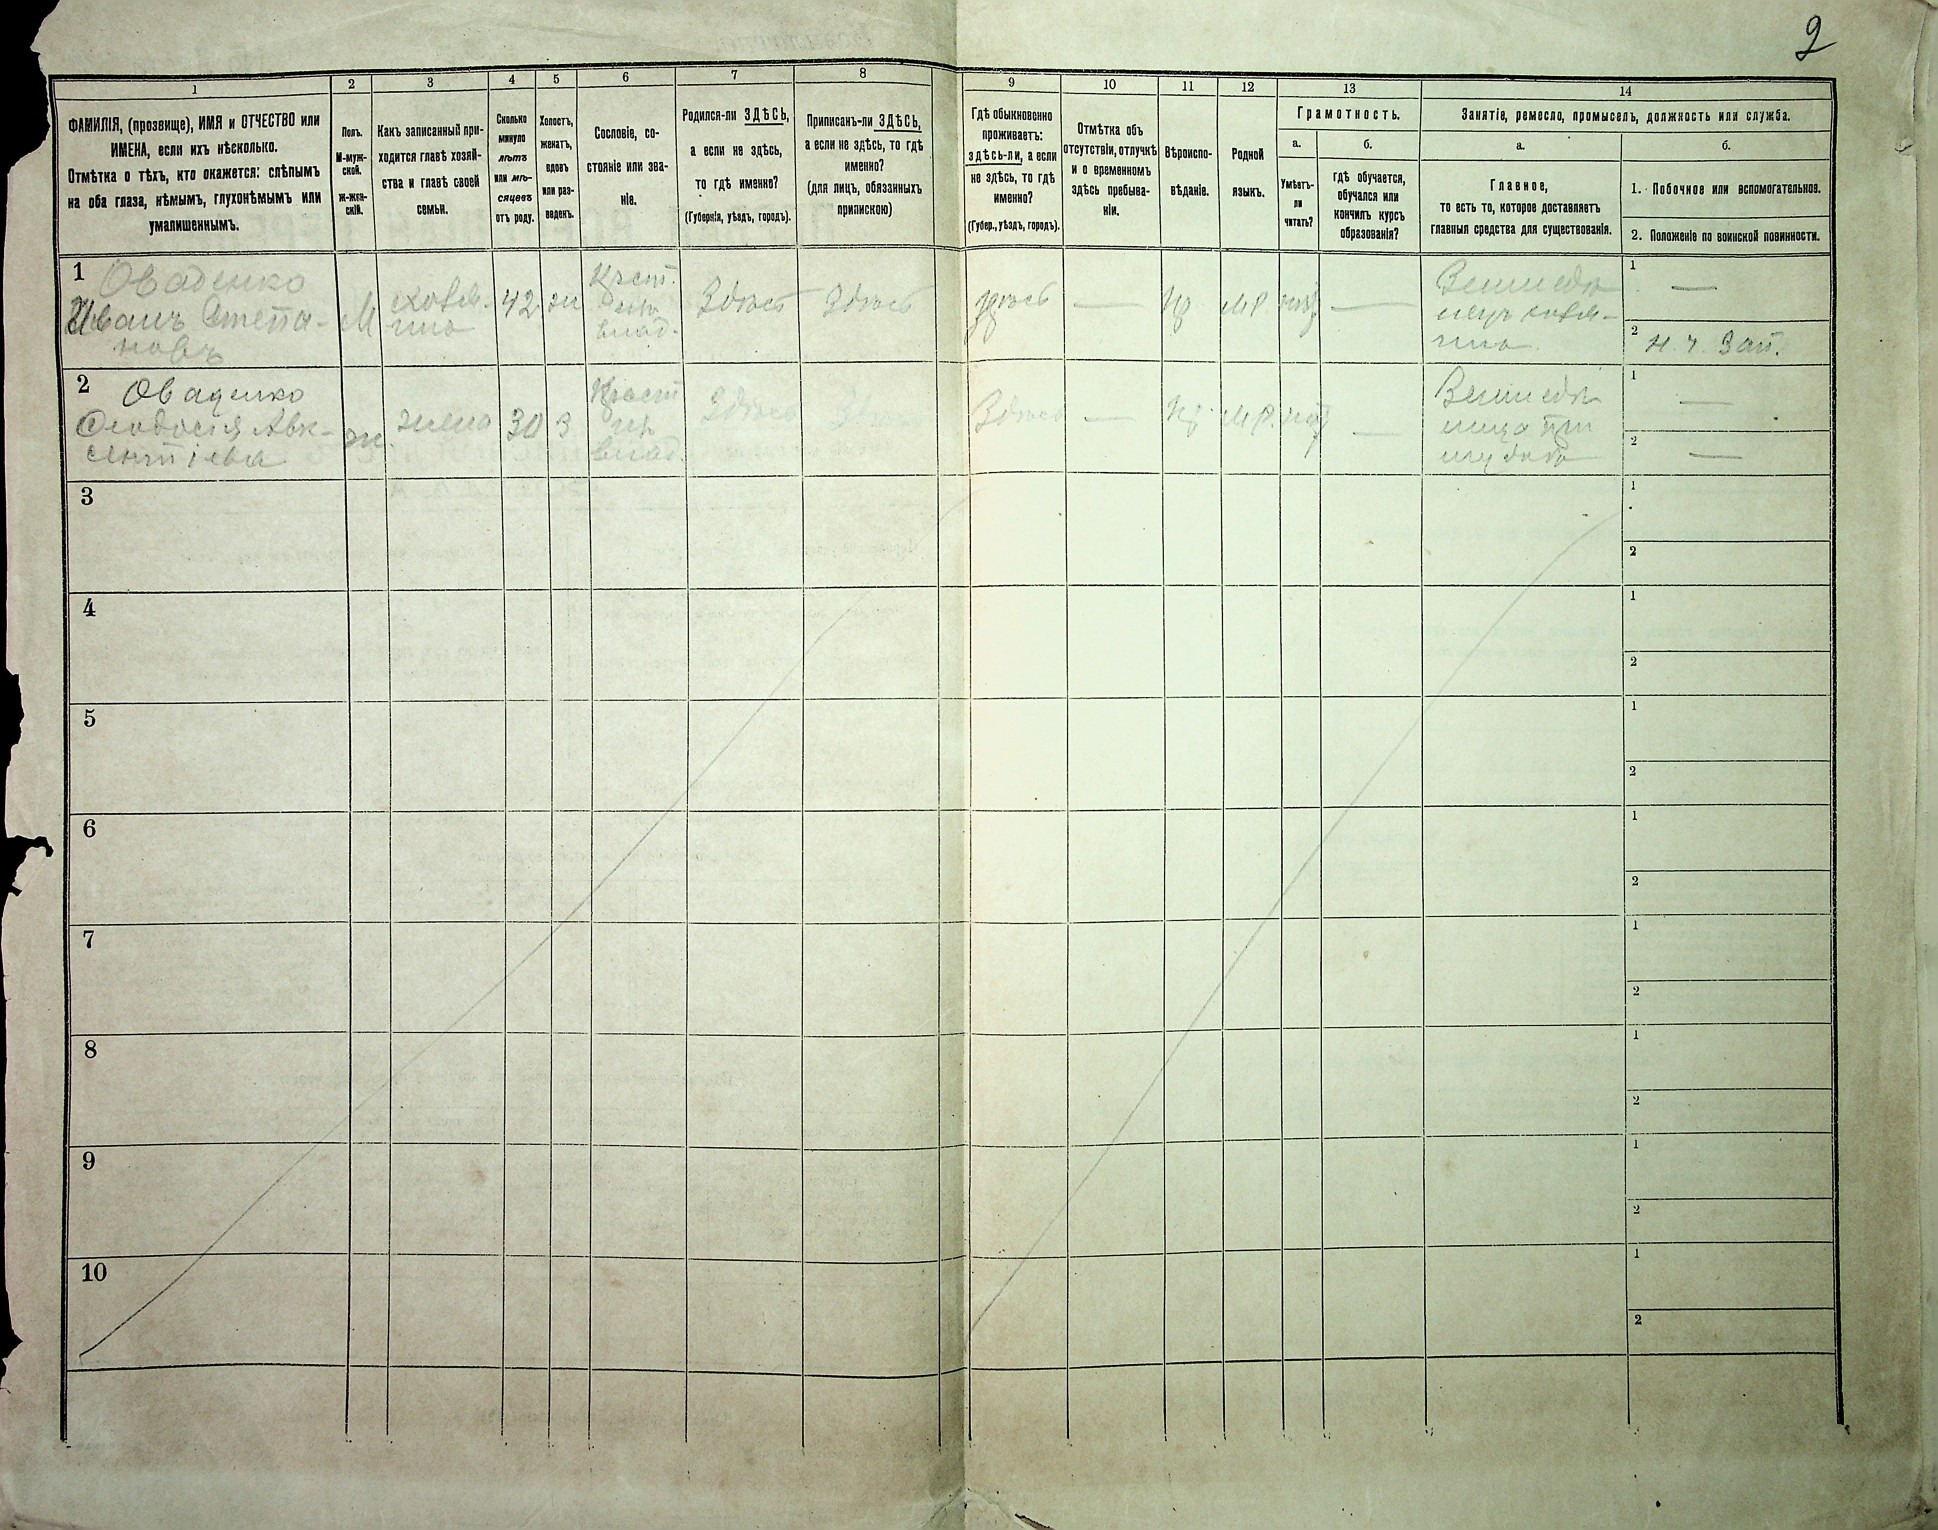 2
1
2
3
4
5
6
7
8
9
10
11
12
13
14
ФАМИЛІЯ, (прозвище), ИМЯ и ОТЧЕСТВО или
ИМЕНА, если ихъ нѣсколько.
Отмѣтка о тѣхъ, кто окажется: слѣпымъ
на оба глаза, нѣмымъ, глухонѣмымъ или
умалишеннымъ.
Полъ.
М-муж-
ской.
ж-жен-
скій.
Какъ записанный при-
ходится главѣ хозяй-
ства и главѣ своей
семьи.
Сколько
минуло
лѣтъ
или мѣ-
сяцевъ
отъ роду.
Холостъ,
женатъ,
вдовъ
или раз-
веденъ.
Сословіе, со-
стояніе или зва-
ніе.
Родился-ли ЗДѢСЬ,
а если не здѣсь,
то гдѣ именно?
(Губернія, уѣздъ, городъ).
Приписанъ-ли ЗДѢСЬ,
а если не здѣсь, то гдѣ
именно?
(для лицъ, обязанныхъ
припискою)
Гдѣ обыкновенно
проживаетъ:
здѣсь-ли, а если
не здѣсь, то гдѣ
именно?
(Губер., уѣздъ, городъ).
Отмѣтка объ
отсутствіи, отлучкѣ
и о временномъ
здѣсь пребыва-
ніи.
Вѣроиспо-
вѣданіе.
Родной
языкъ.
Грамотность.
а.
Умѣетъ-
ли
читать?
б.
гдѣ обучается,
обучался или
кончилъ курсъ
образованія?
Занятіе, ремесло, промыселъ, должность или служба.
а.
Главное,
то есть то, которое доставляетъ
главныя средства для существованія.
б.
1. Побочное или вспомогательное.
2. Положеніе по воинской повинности.
1
Оваденко
Иванъ Степа-
новъ
М
хозя-
инъ
42
ж
Крест.
влад.
Здѣсь
Здѣсь
Здѣсь
—
Пр
М Р.
—
Земледѣ
лецъ хозя-
инъ
1
—
2
н. ч. Зап.
2
Оваденко
Феодосія Авк-
сентіева
ж.
жена
30
З
Крест
влад.
Здѣсь
Здѣсь
Здѣсь
—
Пр
М Р.
—
Земледѣ
лица при
1
—
2
—
3
1
2
4
1
2
5
1
2
6
1
2
7
1
2
8
1
2
9
1
2
10
1
2